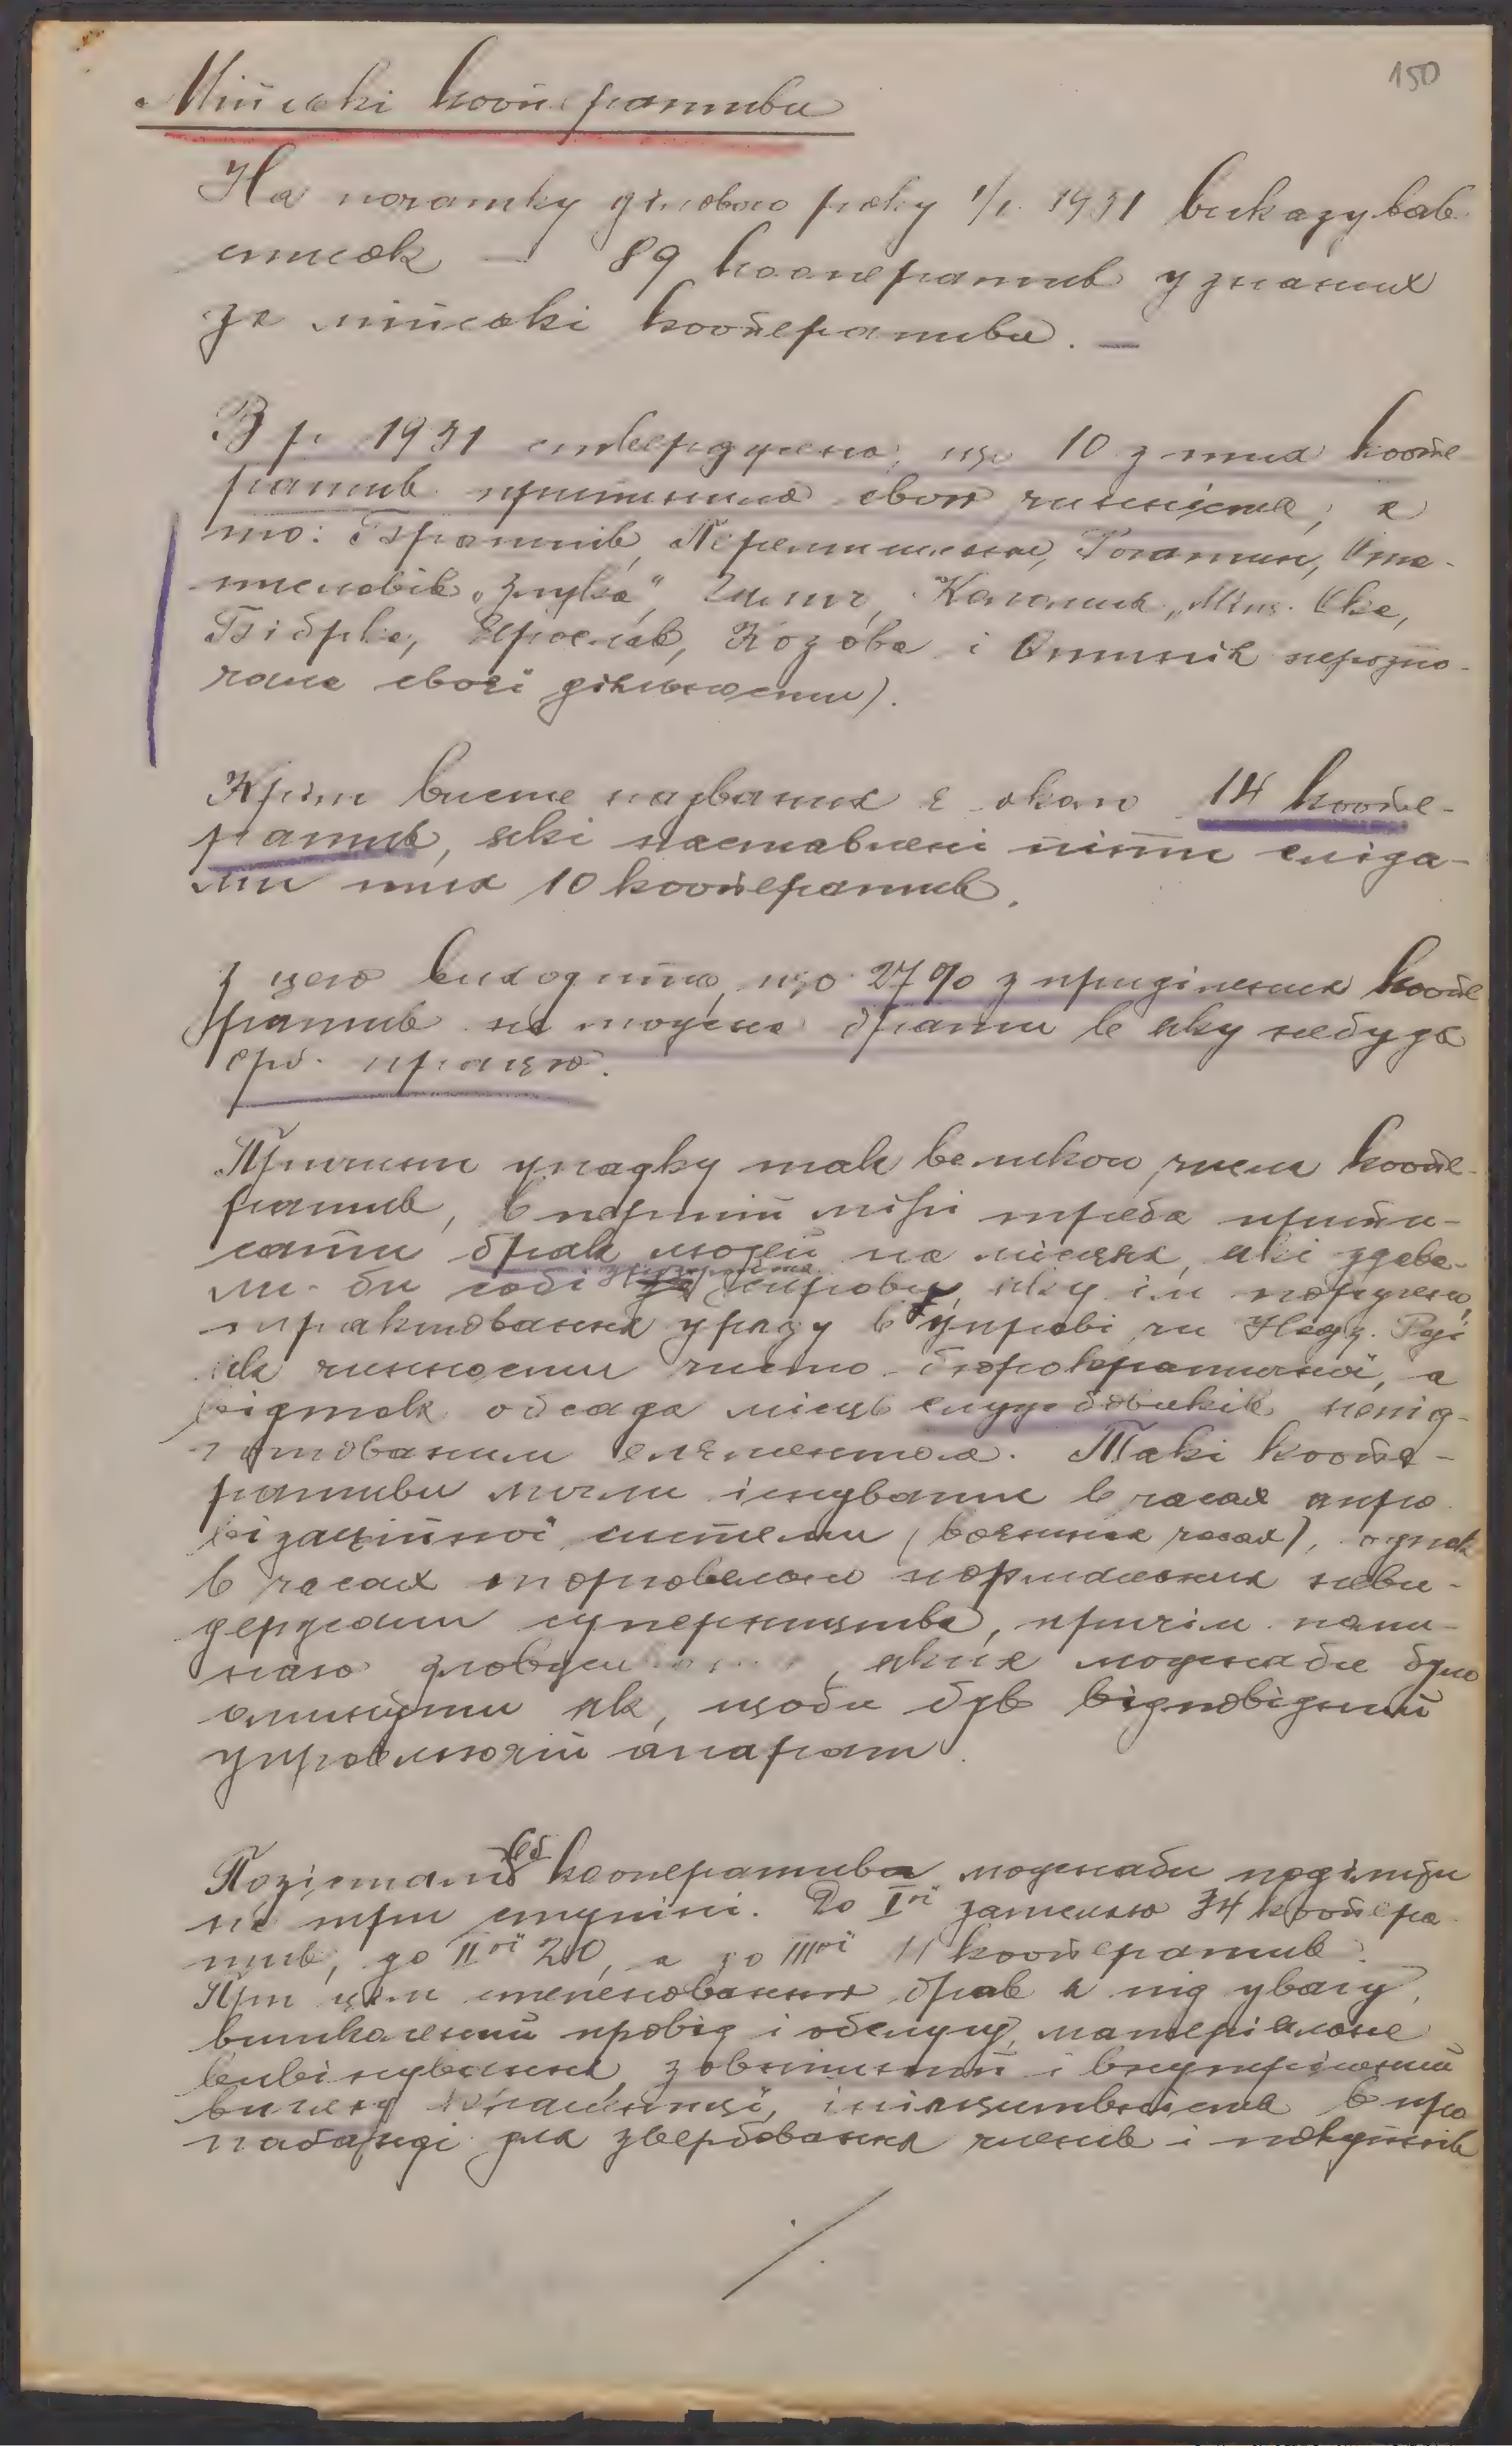 150
Мійські кооперативи
На початку ділового року 1/I. 1931 виказував
список — 89 кооператив узнаних
за мійські кооперативи. —
В р. 1931 стверджено, що 10 з тих коопе
ратив припинила свою чинність, а
то: Братків, Перемишляни, Рогатин, Ста-
ниславів „Злука", Калуш, „Міщ. Ска,
Бібрка, Ярослав, Козова і Отинія нерозпо-
чала своєї діяльности).
Крім висше названих є около 14 коопе-
ратив, які наставлені піти сліда-
ми тих 10 кооператив.
З цего виходить, що 27% з приділених коопе
ратив не можна брати в яку небудь
орг. працю.
Причини упадку так великого числа коопе-
ратив, в першій мірі треба припи-
сати брак людей на місцях, які здава-
ли-би собі справу, яку їм поручено,
трактовання уряду в управі чи Надз. Раді
як чинности чисто бюрократичної, а
відтак обсада місць службовиків непід-
готованим елементом. Такі коопе-
ративи могли існувати в часах апро
візаційної системи (воєнних часах), однак
в часах нормальних неви-
держали суперництва, причім
, яких можна би було
оминути як, щоби був відповідний
управляючий апарат.
Позістаючі кооперативи можнаби поділити
на три ступні. До Iої зачислю 34 коопера
тив, до IIої 20, а до IIIої 11 кооператив.
При цім степеновання брав я під увагу,
вишколений провід і обслугу, матеріяльне
вивінування, зовнішний і внутрішний
вигляд крамниці, ініціятивність в про
паганді для звербовання членів і покупців
/.